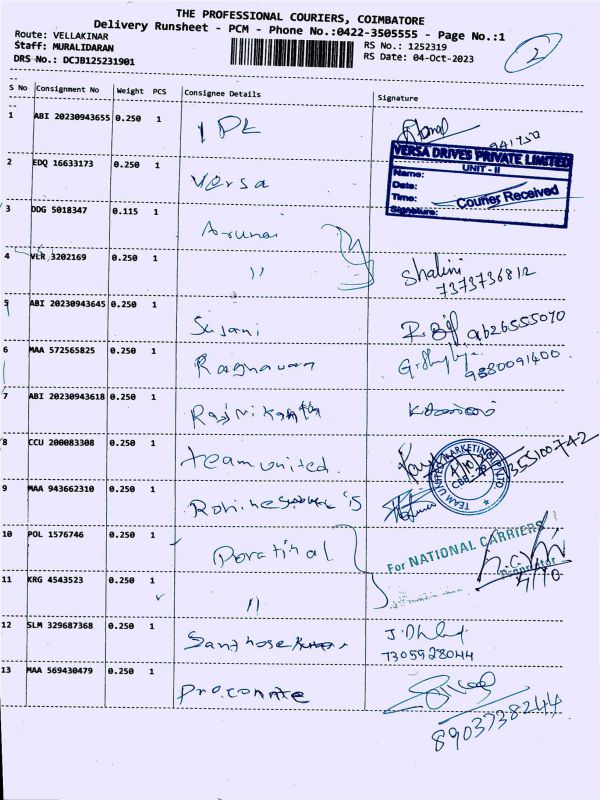 THE PROFESSIONAL COURIERS, COIMBATORE
Delivery Runsheet - PCM - Phone No.:0422-3505555 - Page No.:1
Route: VELLAKINAR
RS No.: 1252319
2
Staff: MURALIDARAN
RS Date: 04-Oct-2023
DRS No.: DCJB125231901
S No Consignment No Weight PCS Consignee Details Signature
1 ABI 20230943655 0.250 1
VERSA DRIVES PRIVATE LIMITED
UNIT - II
Name:
Date:
Time:
Courier Received
Signature:
2 EDQ 16633173 0.250 1 Versa
3 DDG 5018347 0.115 1 Arunai
4 VLR 3202169 0.250 1 " Shalini
7373736812
5 ABI 20230943645 0.250 1 Sujani 9626555070
6 MAA 572565825 0.250 1 Raghavan 9380091400
7 ABI 20230943618 0.250 1 Rajnikanth
8 CCU 200083308 0.250 1 team united.
TEAM UNITED MARKETING P LTD
9 MAA 943662310 0.250 1
10 POL 1576746 0.250 1
For NATIONAL CARRIERS
Proprietor
4/10
11 KRG 4543523 0.250 1 "
12 SLM 329687368 0.250 1
7305528044
13 MAA 569430479 0.250 1 Proconnte
8903738244